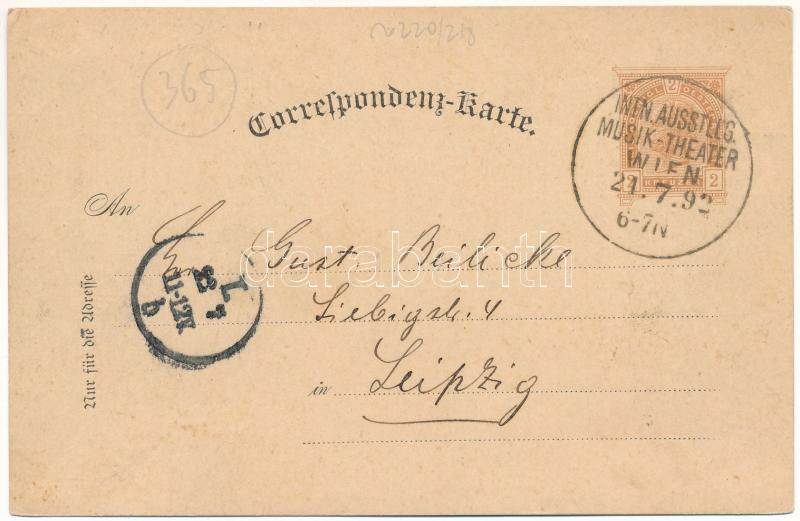 365
Correspondenz-Karte.
2
INTN. AUSSTELLG.
MUSIK-THEATER
WIEN
21.7.92
6-7N
2
An
Gust. Beilicke
Liebigstr. 4
in Leipzig
Nur für die Adresse
L
22 7
11-12N
b
darabanth